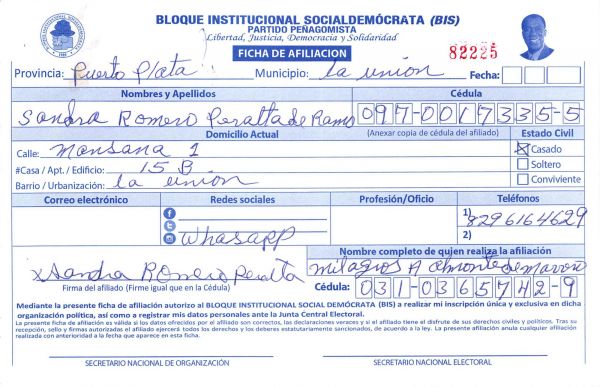 BLOQUE INSTITUCIONAL SOCIALDEMÓCRATA (BIS)
PARTIDO PEÑAGOMISTA
Libertad, Justicia, Democracia y Solidaridad
FICHA DE AFILIACION
82225
Provincia: Puerto Plata Municipio: La union Fecha:
Nombres y Apellidos Cédula
Sandra Romero Peralta de Ramo 097-0017335-5
Domicilio Actual (Anexar copia de cédula del afiliado) Estado Civil
Calle: Mansana 1 Casado
#Casa / Apt. / Edificio: 15 B Soltero
Barrio / Urbanización: La union Conviviente
Correo electrónico Redes sociales Profesión/Oficio Teléfonos
1) 8296164629
Whasapp 2)
Nombre completo de quien realiza la afiliación
x Sandra Romero Peralta milagros A almonte de
Firma del afiliado (Firme igual que en la Cédula) Cédula: 031-0365742-9
Mediante la presente ficha de afiliación autorizo al BLOQUE INSTITUCIONAL SOCIAL DEMÓCRATA (BIS) a realizar mi inscripción única y exclusiva en dicha
organización política, así como a registrar mis datos personales ante la Junta Central Electoral.
La presente ficha de afiliación es válida si los datos ofrecidos por el afiliado son correctos, las declaraciones veraces y si el afiliado tiene el disfrute de sus derechos civiles y políticos. Tras su
recepción, sello y firmas autorizadas el afiliado ejercerá todos los derechos y los deberes estatutariamente sancionados, de acuerdo a la ley. La presente afiliación anula cualquier afiliación
realizada con anterioridad a la fecha que aparece en esta ficha.
SECRETARIO NACIONAL DE ORGANIZACIÓN SECRETARIO NACIONAL ELECTORAL